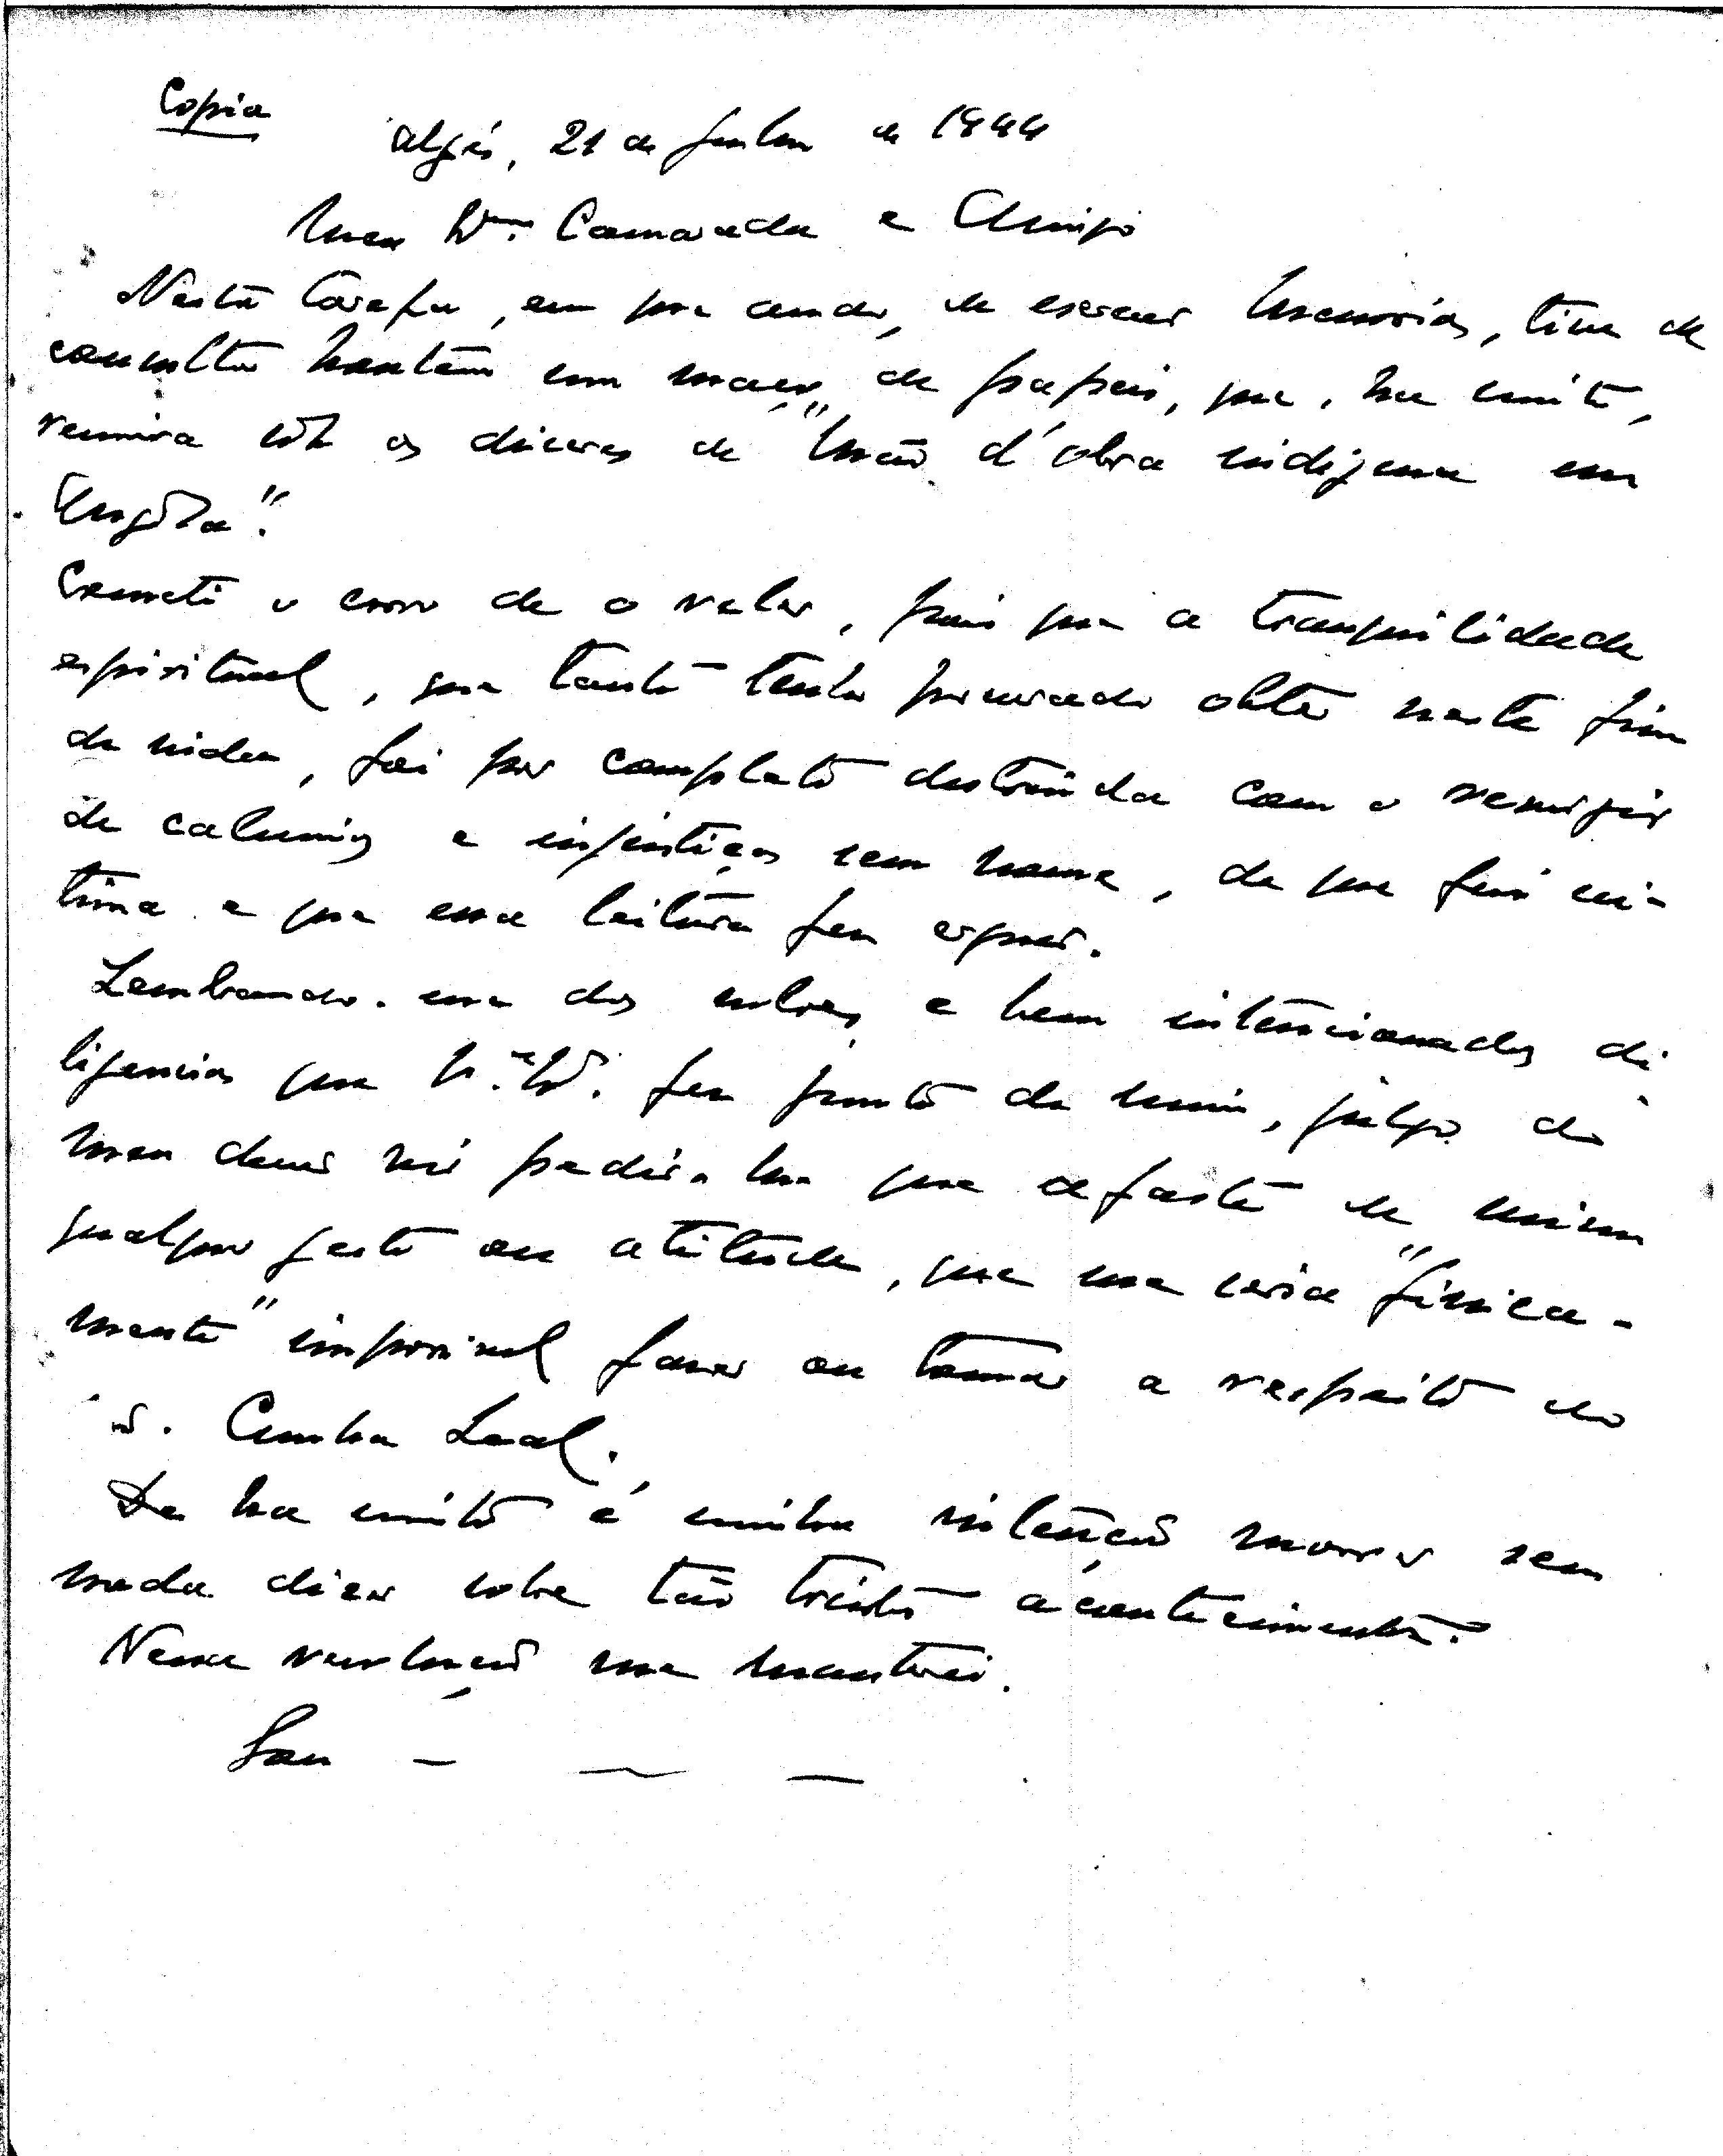 Copia
Algés, 21 de Junho de 1944
Meu Camarada e Amigo
Nesta tarefa, em que ando, de escrever Memorias, tive de
consultar hontem um maço de papeis, que, ha muito,
reunira sob os dizeres de "Mão d'obra indigena em
Angóla".
Cometi o erro de o reler, pois que a tranquilidade
espiritual, que tanto tenho procurado obter neste fim
de vida, foi por completo destruida com o resurgir
de calunias e injustiças sem nome, de que fui vi-
tima e que essa leitura fez erguer.
Lembrando-me das nobres e bem intencionadas di
ligencias que V. Ex. fez junto de mim, julgo do
meu dever vir pedir-lhe que afaste de mim
qualquer gesto ou atitude, que me seria "fisica-
mente" impossivel fazer ou tomar a respeito do
sr. Cunha Leal.
De ha muito é minha intenção morrer sem
nada dizer sobre tão tristes acontecimentos.
Nessa resolução me manterei.
Sou - — —